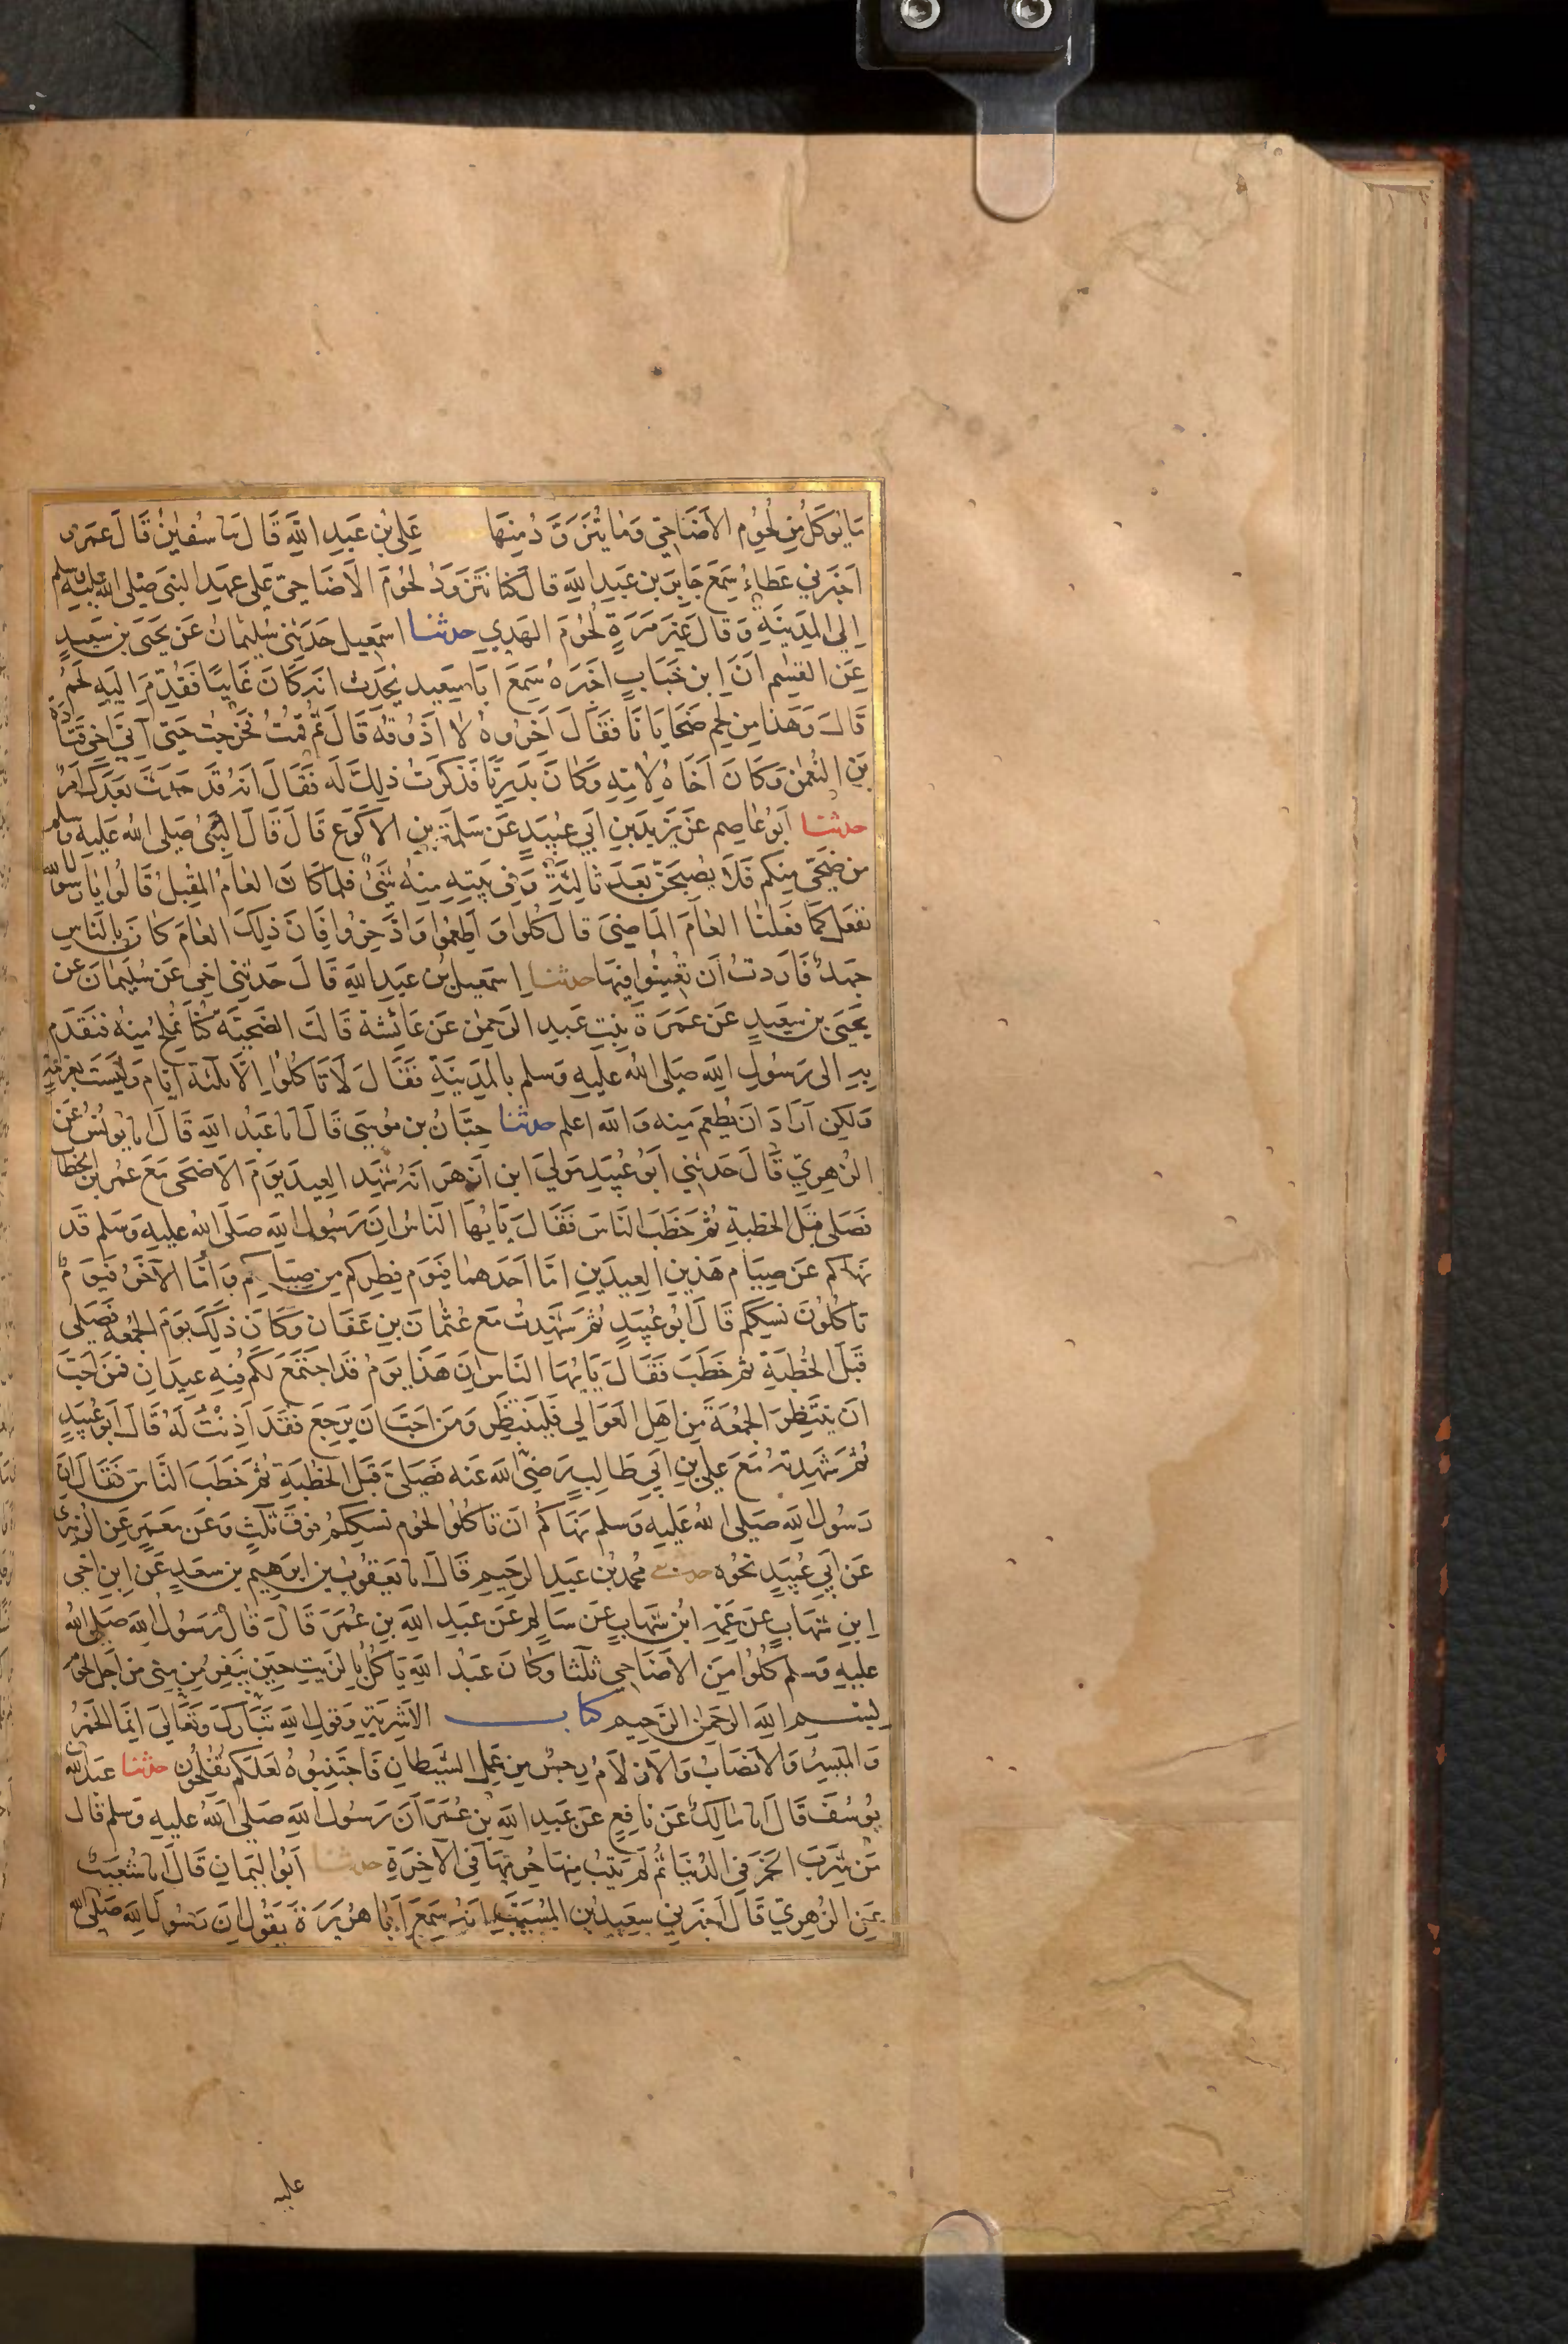 مَا يُوكَلُ مِن لُحُومِ الاَضَاحِيّ وَمَا يُتَزَوَّدُ مِنهَا عَلِيُّ بْنُ عَبدِ اللَّهِ قَالَ نا سُفيٰنُ قَالَ عَمرو
اَخبَرَنِي عَطاءٌ سَمِعَ جَابِرَ بن عَبدِ اللَّهِ قالَ كُنا نَتَزَوَّدُ لحُومَ الاَضَاحِيّ عَلى عهَدِ النبيَ صَلى الله عليه وسلم
اِلىَ المدِينَةِ وَقالَ غَيرَ مَرَةٍ لحُومَ الهَديِ حدثنا اسمٰعيل حَدَثِنى سُلَيمانُ عَن يَحيَى بن سَعِيدٍ
عَن القٰسِم اَنَّ ابن خَبَابٍ اَخبَرَهُ سَمِعَ اَبَا سَعِيدٍ يُحَدِث انه كَانَ غَايِبًا فَقُدِّمَ اِلَيهِ لَحمٌ
قَالَ وَهَذا مِن لحِم ضَحَايَا نَا فقَالَ اَخِروُهُ لا اَذُوقهُ قَالَ ثُم قُمْتُ فَخرَجتُ حَتىَ آتيَ اَخِي قَتَادَة
بنِ النُعمٰن وَكَانَ اَخَاهُ لِامِهِ وَكَانَ بَدرِيًّا فَذَكَرتُ ذلِكَ لَه فَقَالَ انهُ قَد حَدَثَ بَعدَكَ اَمرٌ
حدثنا اَبُو عَاصِم عَن يَزِيدَ بنِ اَبِي عُبَيدٍ عَن سَلَمَةَ بنِ الاكوَعِ قَالَ قَالَ النَّبيُ صَلى الله عَليهِ وسلم
من ضَحَّى مِنكُم فَلاَ يُصبِحَنَّ بَعدَ ثالِثَةٍ وَفي بَيتِهِ مِنهُ شَيءٌ فلمَا كانَ العَامُ المقبِلُ قَالُوا يَا رَسُولَ الله
نفعَل كَمَا فعَلنَا العَامَ المَاضيَ قالَ كُلُوا وَاَطعِمُوا وَادَّخِرُوا فَاِنَ ذلِكَ العَامَ كَانَ بِالنَاسِ
جَهدٌ فَارَدتُ اَن تُعِينُوا فِيهَا حدثنا اِسمٰعِيلُ بن عَبدِ اللَّهِ قَالَ حَدثنِي اَخِي عَن سُلَيمَانَ عَن
يَحيَى بن سَعِيدٍ عَن عَمرَةَ بنتِ عَبدِ الرَحمٰن عَن عَائشَة قَالت الضَّحِيَّة كُنَّا نُملِحُ مِنهُ فنَقدَمُ
بِهِ اِلى رَسُولِ اللَّهِ صَلى الله عَليهِ وَسلم بالمَدِينَةِ فَقَالَ لَا تَاكُلُوا اِلَّا ثلثةَ ايَّامٍ وَلَيسَت بعَزيمَةٍ
وَلَكِن اَرَادَ اَنْ يُطعِمَ مِنه وَالله اعلم حدثنا حِبَّانُ بن مُوسَى قَالَ انا عَبدُ اللَّهِ قَالَ انا يُونُسُ عَن
الزُهرِيِّ قَالَ حَدثِنِي اَبُو عُبَيدٍ مَولَي ابن اَزهَرَ انهُ شَهِدَ العِيدَ يَومَ الاَضحَى مَعَ عُمرَ بنِ الخطَاب
فَصَلى قَبْلَ الخُطبةِ ثُمَ خَطَبَ النَاسَ فَقَالَ يَايُها النَاسُ اِنَ رَسُولَ اللَّهِ صَلَى الله عليهِ وَسَلم قَد
نَهَاكُم عَن صِيَامِ هَذينِ العِيدَينِ امَّا اَحَدهمَا فيَوم فِطرِكُم مِن صِيَامِكُم وَامَّا الآخَرُ فَيَومٌ
تَاكُلُونَ نسككُم قَالَ ابُو عُبَيدٍ ثُم شَهِدتُ مَعَ عُثمٰانَ بنِ عَفَانَ وَكَانَ ذلِكَ يَومَ الجُمعَة فَصَلى
قَبلَ الخُطبَةِ ثمَ خَطَبَ فَقَالَ يَايُها النَاسُ اِنَ هَذَا يَومٌ قَد اجتَمَعَ لَكُم فِيهِ عِيدَانِ فمَن اَحَبَّ
ان يَنتَظِرَ الجمُعَةَ مِن اَهلِ العَوَالِي فَليَنتَظِر وَمَن اَحَبَّ ان يَرجِعَ فقَد اَذِنتُ لَهُ قَالَ اَبو عُبَيدٍ
ثُمَ شَهِدتهُ مَعَ عَليّ بنِ اَبِي طَالِبٍ رَضيَ الله عَنه فَصَلىَ قَبلَ الخُطبَةِ ثُمَ خَطَبَ النَّاسَ فَقَالَ اِنَّ
رَسُولَ اللهِ صَلى الله عَليهِ وَسلم نَهَاكُم اَن تَاكُلُوا لحُوم نسككُمْ فوقَ ثَلثٍ وَعَن مَعمَرٍ عَنِ الزُهري
عَن اَبِي عُبَيدٍ نَحوُه حدثنا مُحمد بْنُ عَبدِ الرَحِيمِ قَالَ انا يَعقُوبُ بن ابرَهِيم بن سعَدٍ عَنِ ابنِ اَخِي
اِبنِ شهَابٍ عَن عَمِّهِ ابنِ شهَابٍ عَن سَالِم عَن عَبدِ اللَّهِ بنِ عُمَرَ قَالَ قَالَ رَسُولُ اللَّهِ صَلى اللهُ
عليهِ وَسلم كُلُوا مِنَ الاَضَاحِي ثلثا وَكَانَ عَبدُ اللَّهِ يَاكُلُ بِالزَيتِ حِينَ يَنفِرُ مِن مِنى مِن اَجلِ لحُوم
بِسْمِ اللَّهِ الرَحمٰنِ الرَّحِيمِ كتاب الاَشرِبَةِ وَقولِ اللهِ تَبَارَكَ وَتَعَالىَ اِنمَا الخَمرُ
وَالمَيسِرُ وَالاَنصَابُ وَالاَزلَامُ رِجسٌ مِن عَمَلِ الشيَطانِ فَاجتَنِبُوهُ لَعَلكُم تُفلِحُون حدثنا عَبدُ الله بن
يُوسُفَ قَالَ انا مَالِكٌ عَن نافِعٍ عَن عَبدِ اللَّهِ بن عُمَرَ اَنَ رَسُولَ اللَّهِ صَلى اللهُ عليهِ وَسلم قَالَ
مَن شَرِبَ الخمرَ فيِ الدُنيَا ثُم لَم يَتبُ مِنهَا حُرِمَهَا فيِ الآخِرَةِ حدثنا اَبُو اليَمانِ قَالَ انا شُعَيبٌ
عَنِ الزُهرِيِّ قَالَ اَخبَرَنِي سَعِيدُ بن المُسَيَّبِ انهُ سَمِعَ اَبَا هُرَيرَةَ يَقُولُ اِنَ رَسُولَ اللَّهِ صَلى الله
عليه